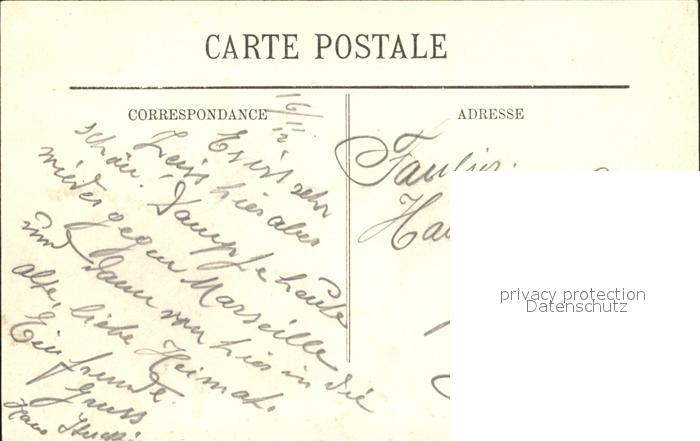 CARTE POSTALE
CORRESPONDANCE
ADRESSE
16/12
Es ist sehr
heiss hier aber
schön. Dampfe heute
wieder gegen Marseille
und dann von hier in die
alte, liebe Heimat.
Ein freundl.
Gruss
Hans
Familie
privacy protection
Datenschutz